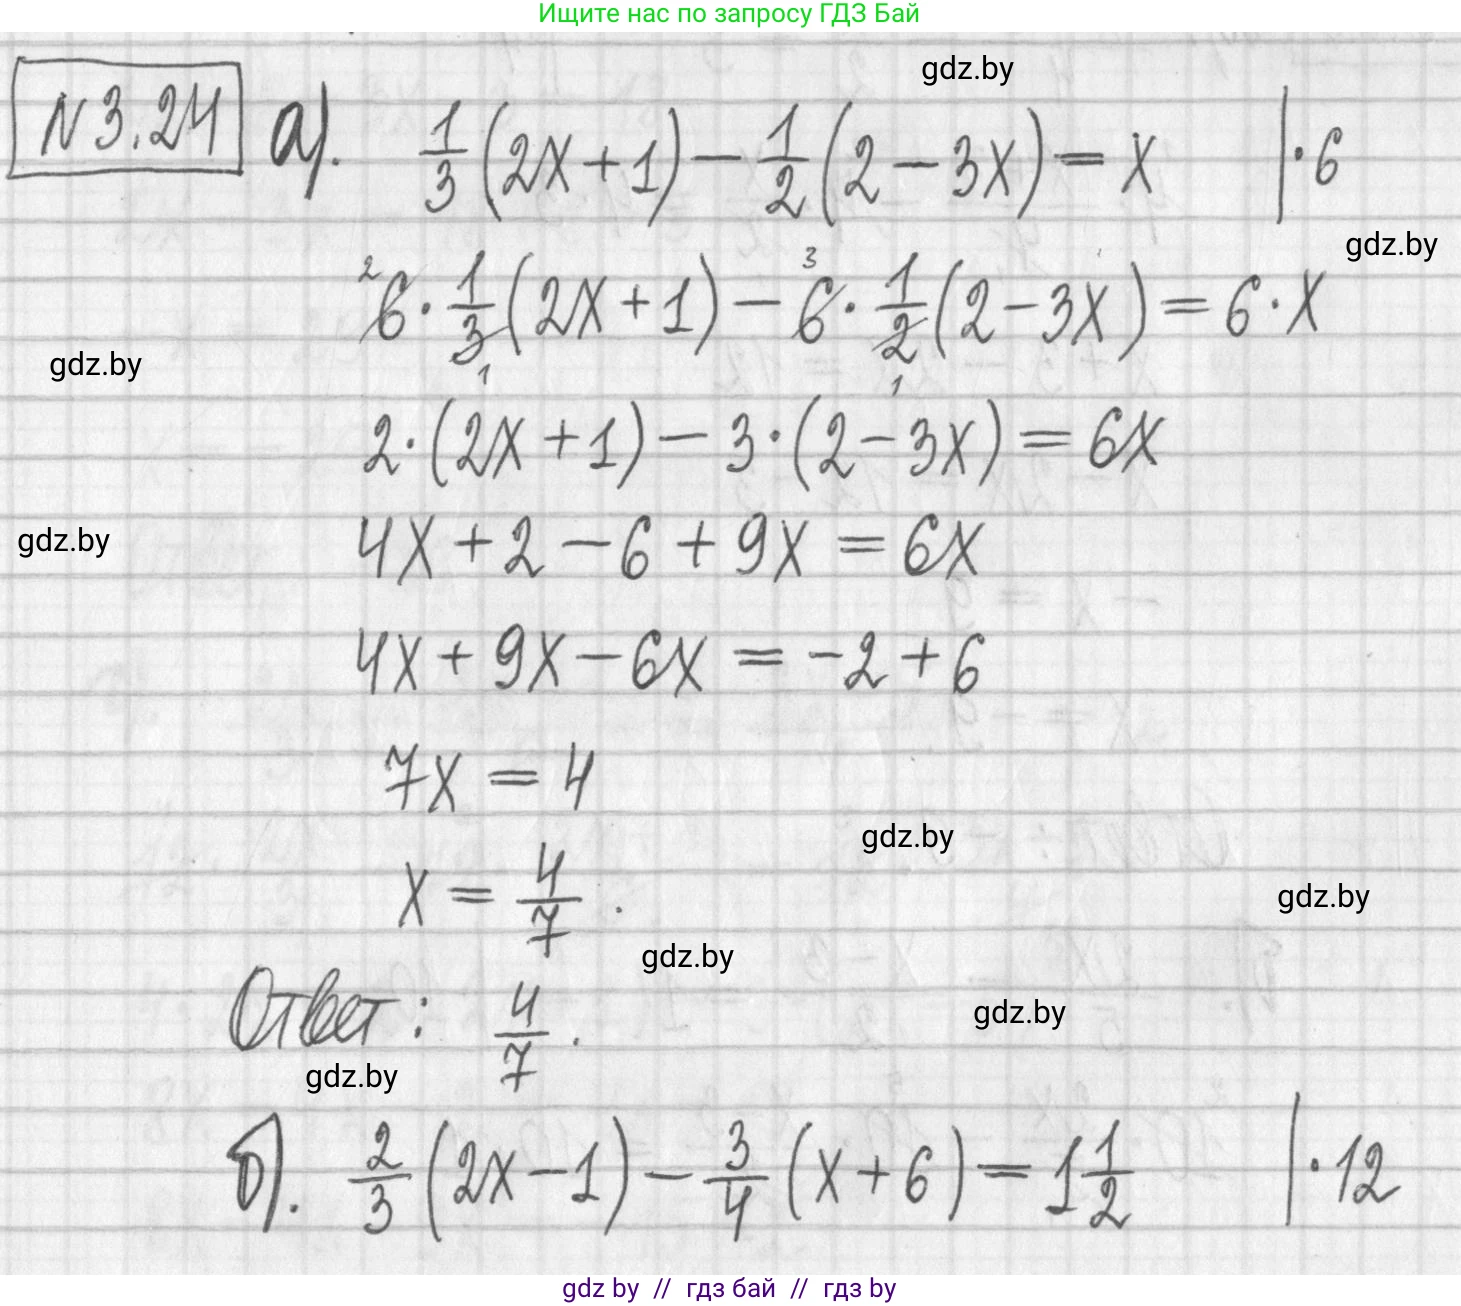 Ищите нас по запросу ГДЗ Бай
gdz.by
N 3.24 а). 1/3 (2x + 1) − 1/2 (2 − 3x) = x | · 6
gdz.by
2 6 · 1/3 (2x + 1) − 3 6 · 1/2 (2 − 3x) = 6 · x
gdz.by
1 1
2 · (2x + 1) − 3 · (2 − 3x) = 6x
gdz.by
4x + 2 − 6 + 9x = 6x
4x + 9x − 6x = −2 + 6
7x = 4
gdz.by
x = 4/7 .
gdz.by
gdz.by
Ответ: 4/7 .
gdz.by
gdz.by
б). 2/3 (2x − 1) − 3/4 (x + 6) = 1 1/2 | · 12
gdz by // гдз бай // гдз by